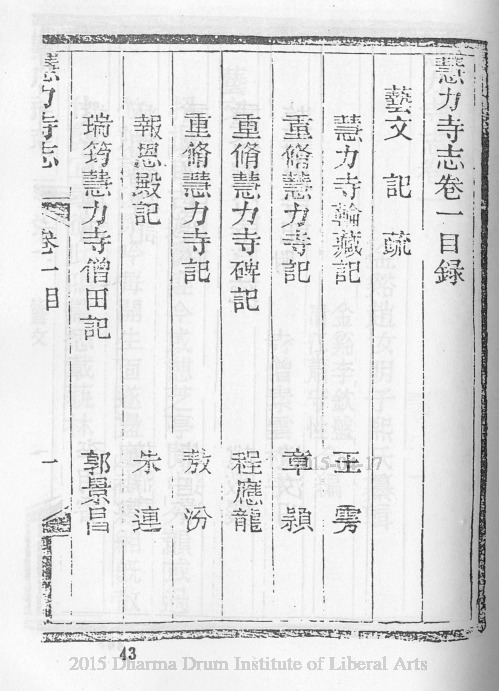 慧力寺志卷一目録
藝文 記 疏
慧力寺輪藏記 王雱
重脩慧力寺記 章穎
重脩慧力寺碑記 程應龍
重脩慧力寺記 敖汾
報恩殿記 朱連
瑞筠慧力寺僧田記 郭景昌
慧力寺志 卷一目 一
43
2015 Dharma Drum Institute of Liberal Arts